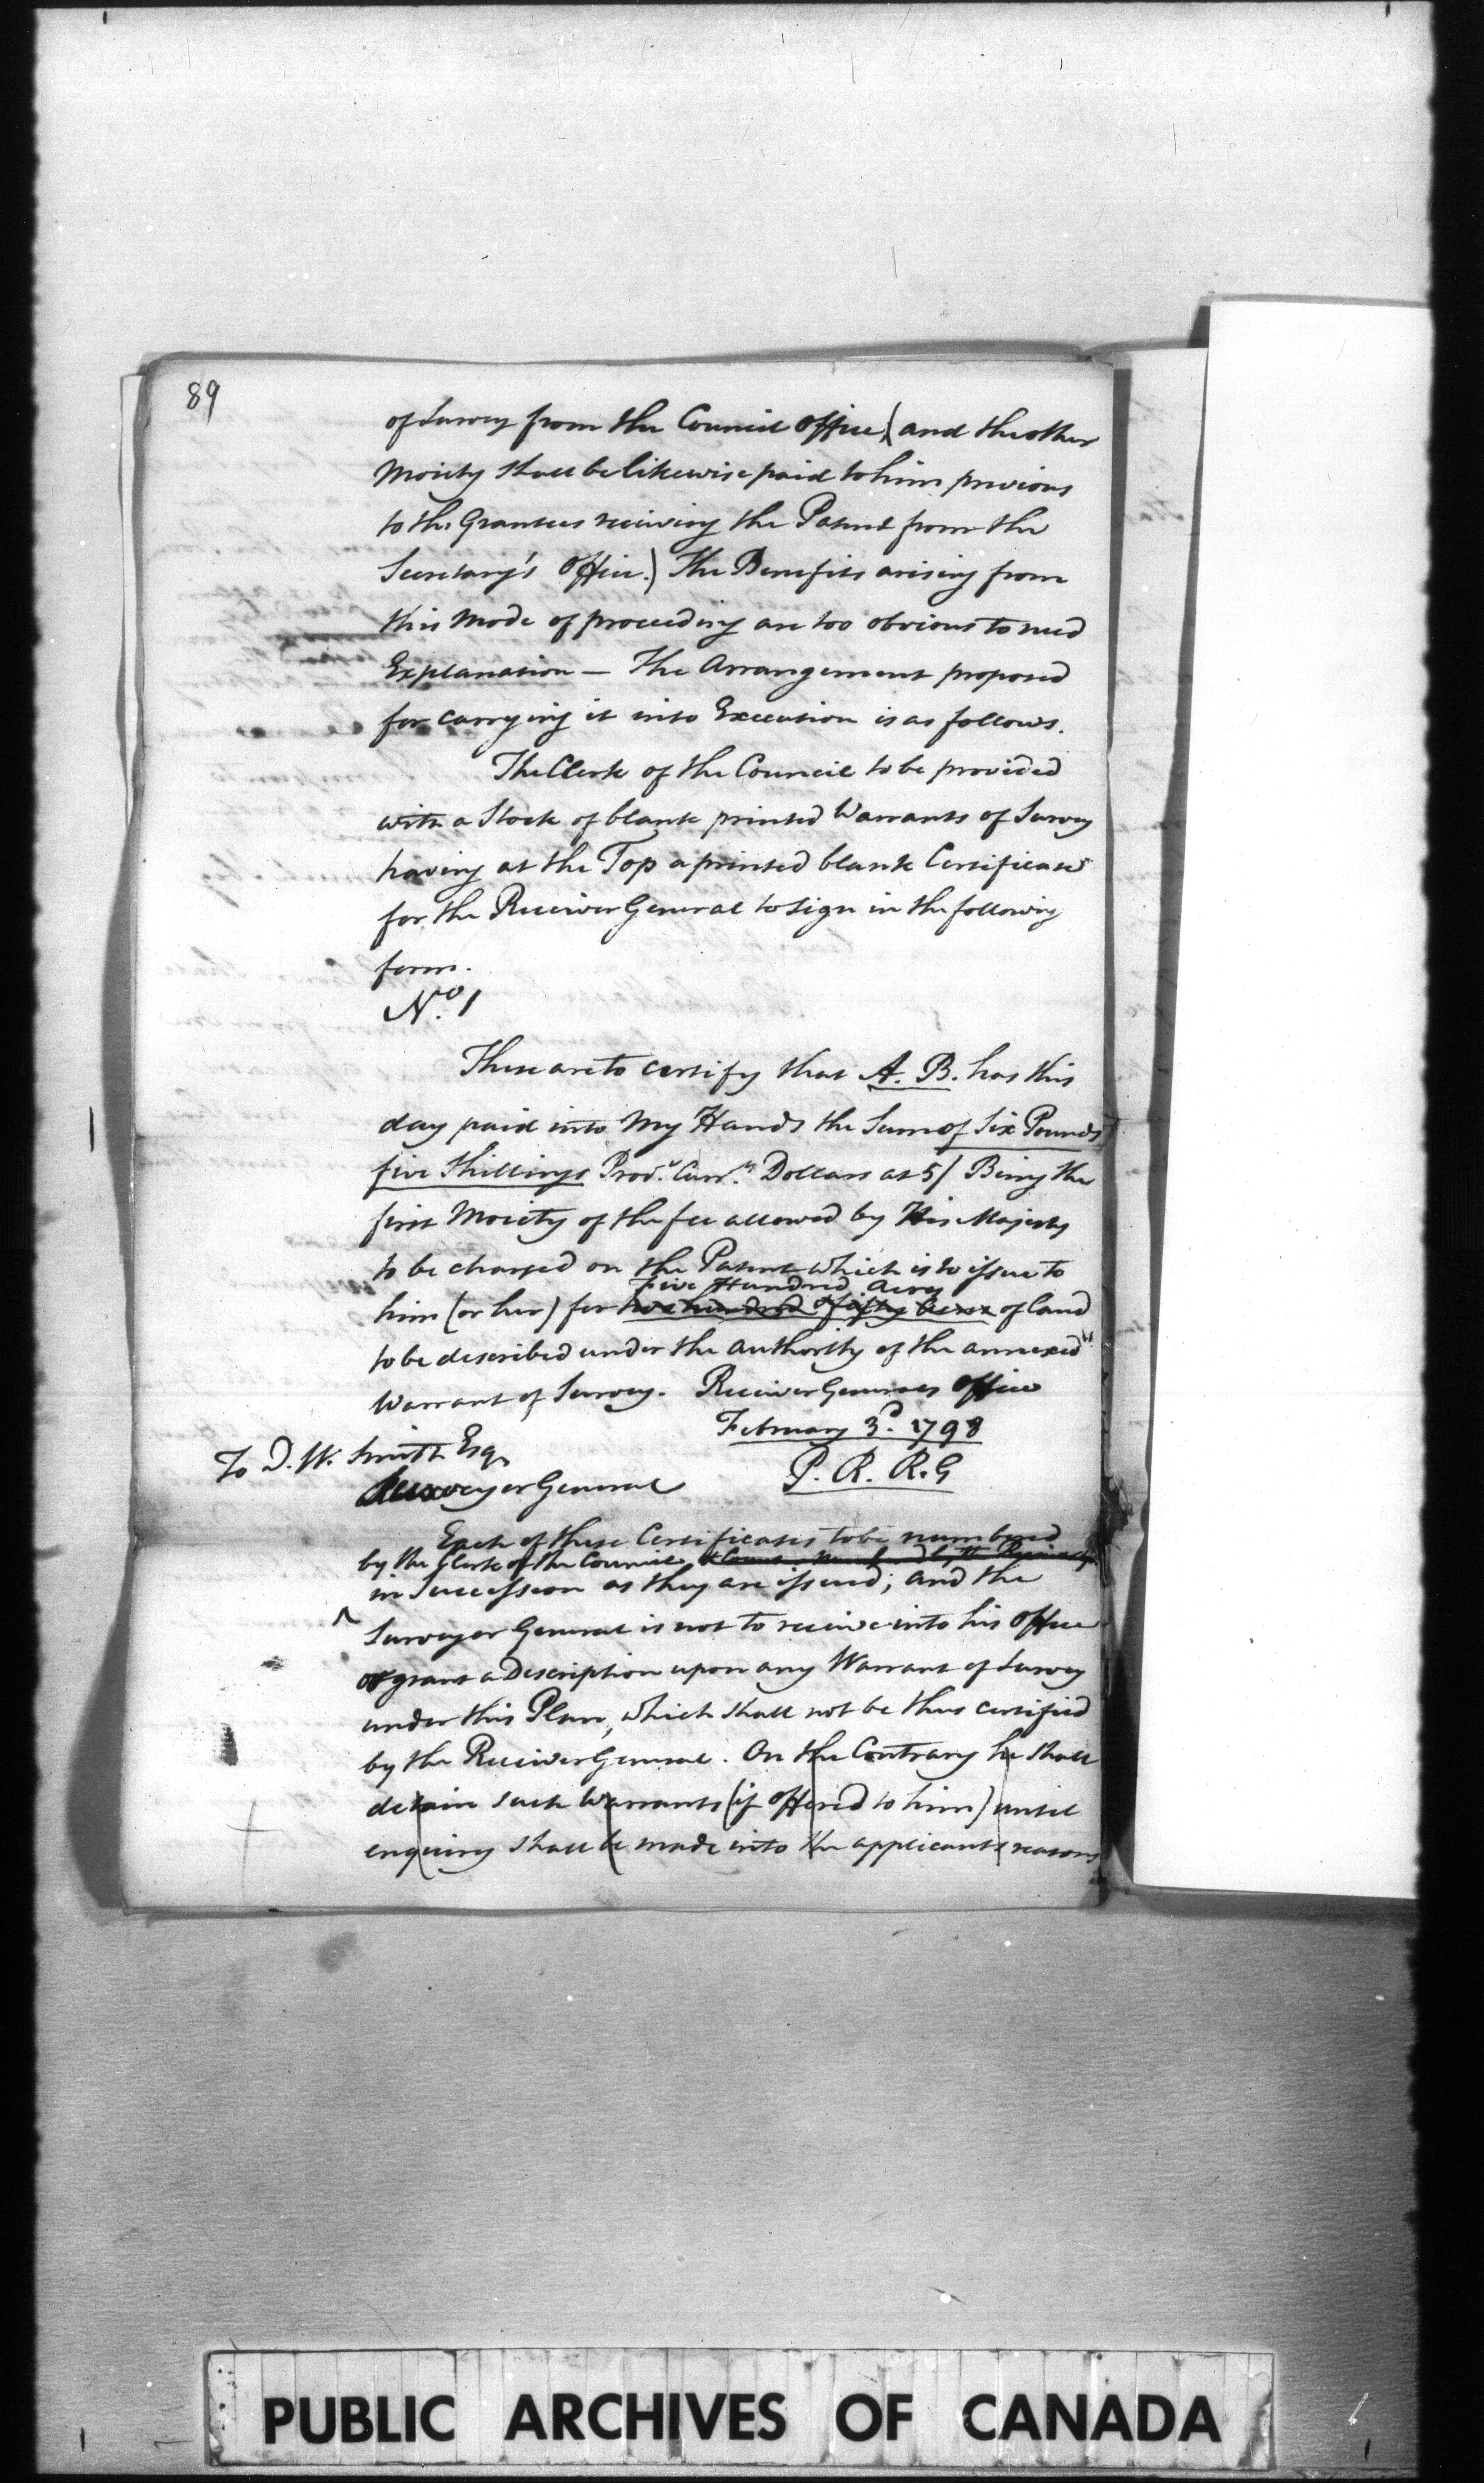 89
of Survey from the Council office) and the other
Moiety shall be likewise paid to him previous
to the Grantees receiving the Patent from the
Secretary's Office.) The Benefits arising from
this Mode of proceeding are too obvious to need
Explanation — The Arrangement proposed
for carrying it into Execution is as follows.
The Clerk of the Council to be provided
with a Stock of blank printed Warrants of Survey
having at the Top a printed blank Certificate
for the Receiver General to sign in the following
form.
No. 1
These are to certify that A. B. has this
day paid into My Hands the Sum of Six Pounds
five Shillings Prov.l Curr.y Dollars at 5/ Being the
first Moiety of the fee allowed by His Majesty
to be charged on the Patent which is to issue to
Five Hundred Acres
him (or her) for two hundred & fifty Acres of Land
to be described under the authority of the annexed
Warrant of Survey. Receiver Generals Office
February 3d. 1798
To D. W. Smith Esq.
P. R. R. G
Surveyor General
Each of these Certificates to be numbered
by the Clerk of the Council
in Succession as they are issued; and the
Surveyor General is not to receive into his Office
or grant a Description upon any Warrant of Survey
under this Plan, which shall not be thus certified
by the Receiver General. On the Contrary he shall
detain such Warrants (if offered to him) until
enquiry shall be made into the applicants reasons
PUBLIC ARCHIVES OF CANADA